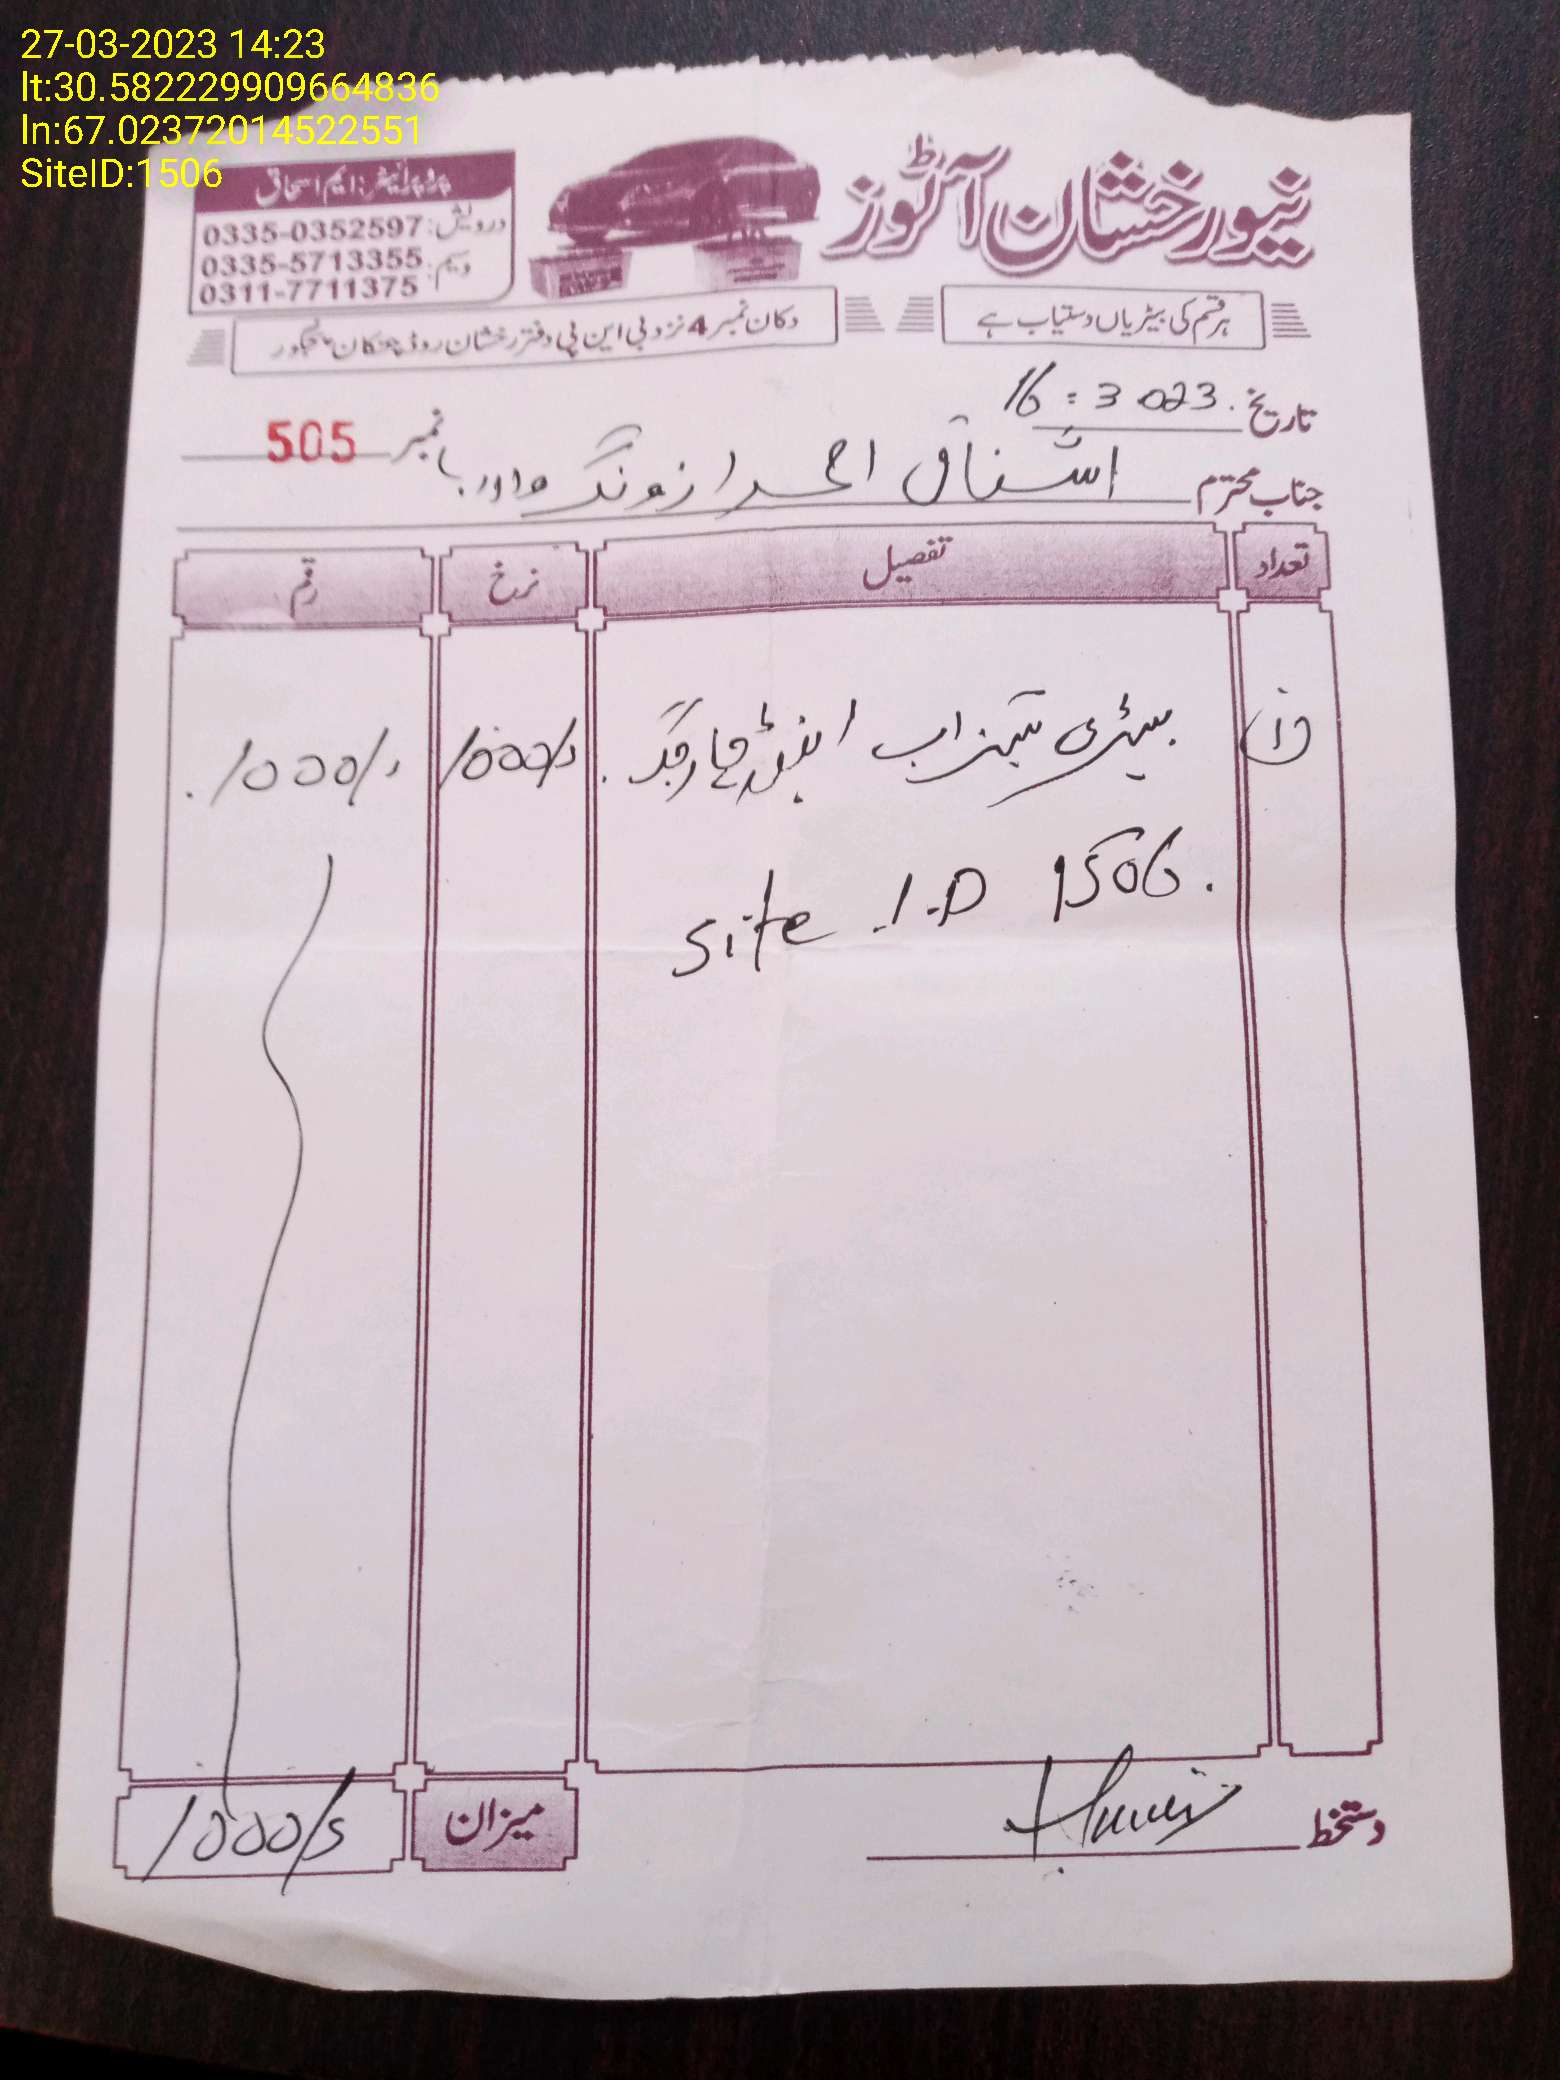 27-03-2023 14:23
lt:30.582229909664836
ln:67.02372014522551
SiteID:1506
نیو رخشان آٹوز
پروپرائیٹر: ایم اسحاق
درویش: 0335-0352597
وسیم: 0335-5713355
0311-7711375
ہر قسم کی بیٹریاں دستیاب ہے
دکان نمبر 4 نزد بی این پی دفتر رخشان روڈ چتکان پنجگور
تاریخ 16 = 3 023.
نمبر 505
جناب محترم اشفاق احمد از ونگ
تعداد تفصیل نرخ رقم
1 بیٹری تیزاب اینڈ چارجنگ 1000/s 1000/s
Site I.D 1506.
دستخط
میزان 1000/s